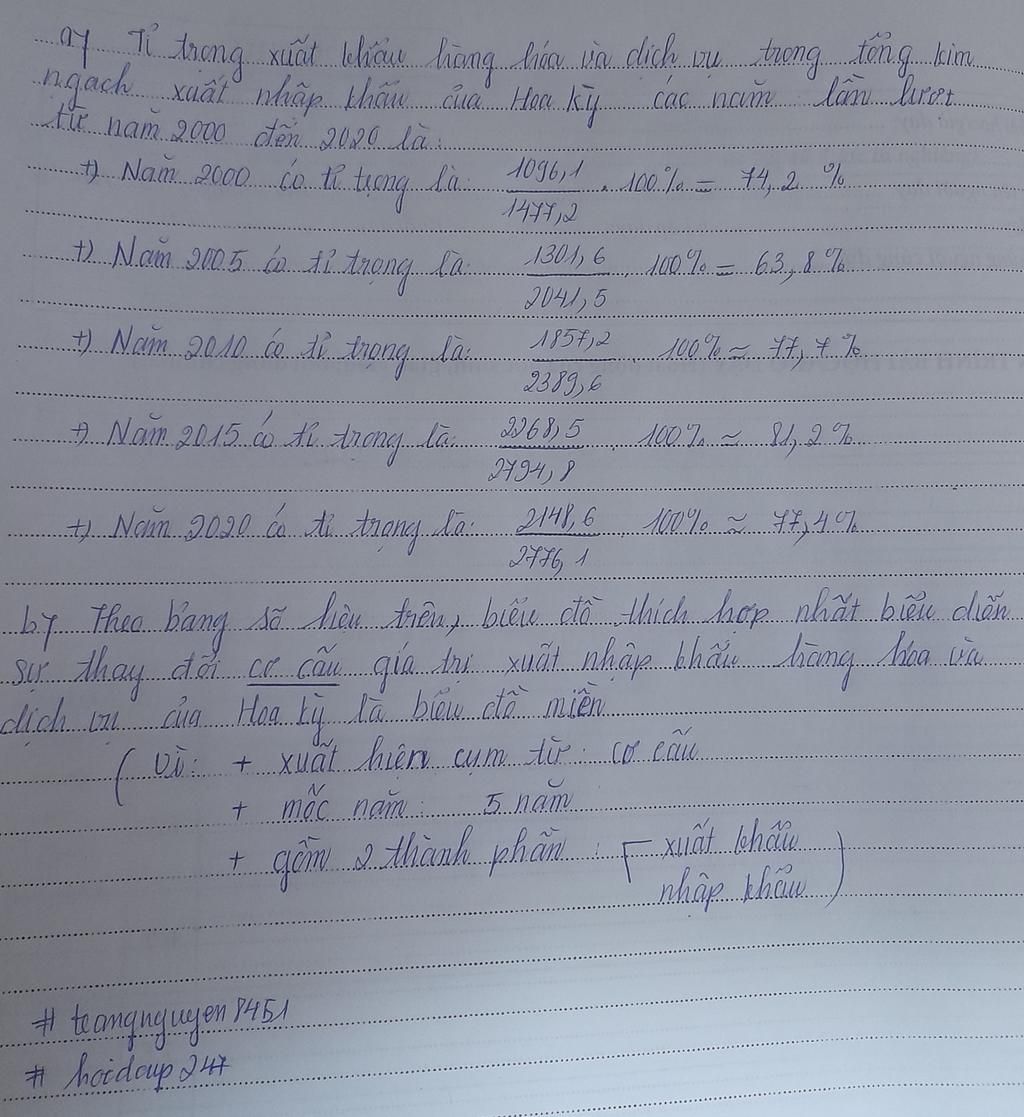 a) Tỉ trọng xuất khẩu hàng hóa và dịch vụ trong tổng kim
ngạch xuất nhập khẩu của Hoa Kỳ các năm lần lượt
từ năm 2000 đến 2020 là:
+) Năm 2000 có tỉ trọng là: 1096,1 / 1477,2 . 100% = 74,2 %
+) Năm 2005 có tỉ trọng là: 1301,6 / 2041,5 . 100% = 63,8%
+) Năm 2010 có tỉ trọng là: 1857,2 / 2389,6 . 100% ≈ 77,7%
+) Năm 2015 có tỉ trọng là: 2268,5 / 2794,8 . 100% ≈ 81,2%
+) Năm 2020 có tỉ trọng là: 2148,6 / 2776,1 . 100% ≈ 77,4%
b) Theo bảng số liệu trên, biểu đồ thích hợp nhất biểu diễn
sự thay đổi cơ cấu giá trị xuất nhập khẩu hàng hóa và
dịch vụ của Hoa Kỳ là biểu đồ miền
( Vì: + xuất hiện cụm từ: cơ cấu
+ mốc năm: 5 năm
+ gồm 2 thành phần: [ xuất khẩu
nhập khẩu )
# teamnguyen8451
# hoidap247